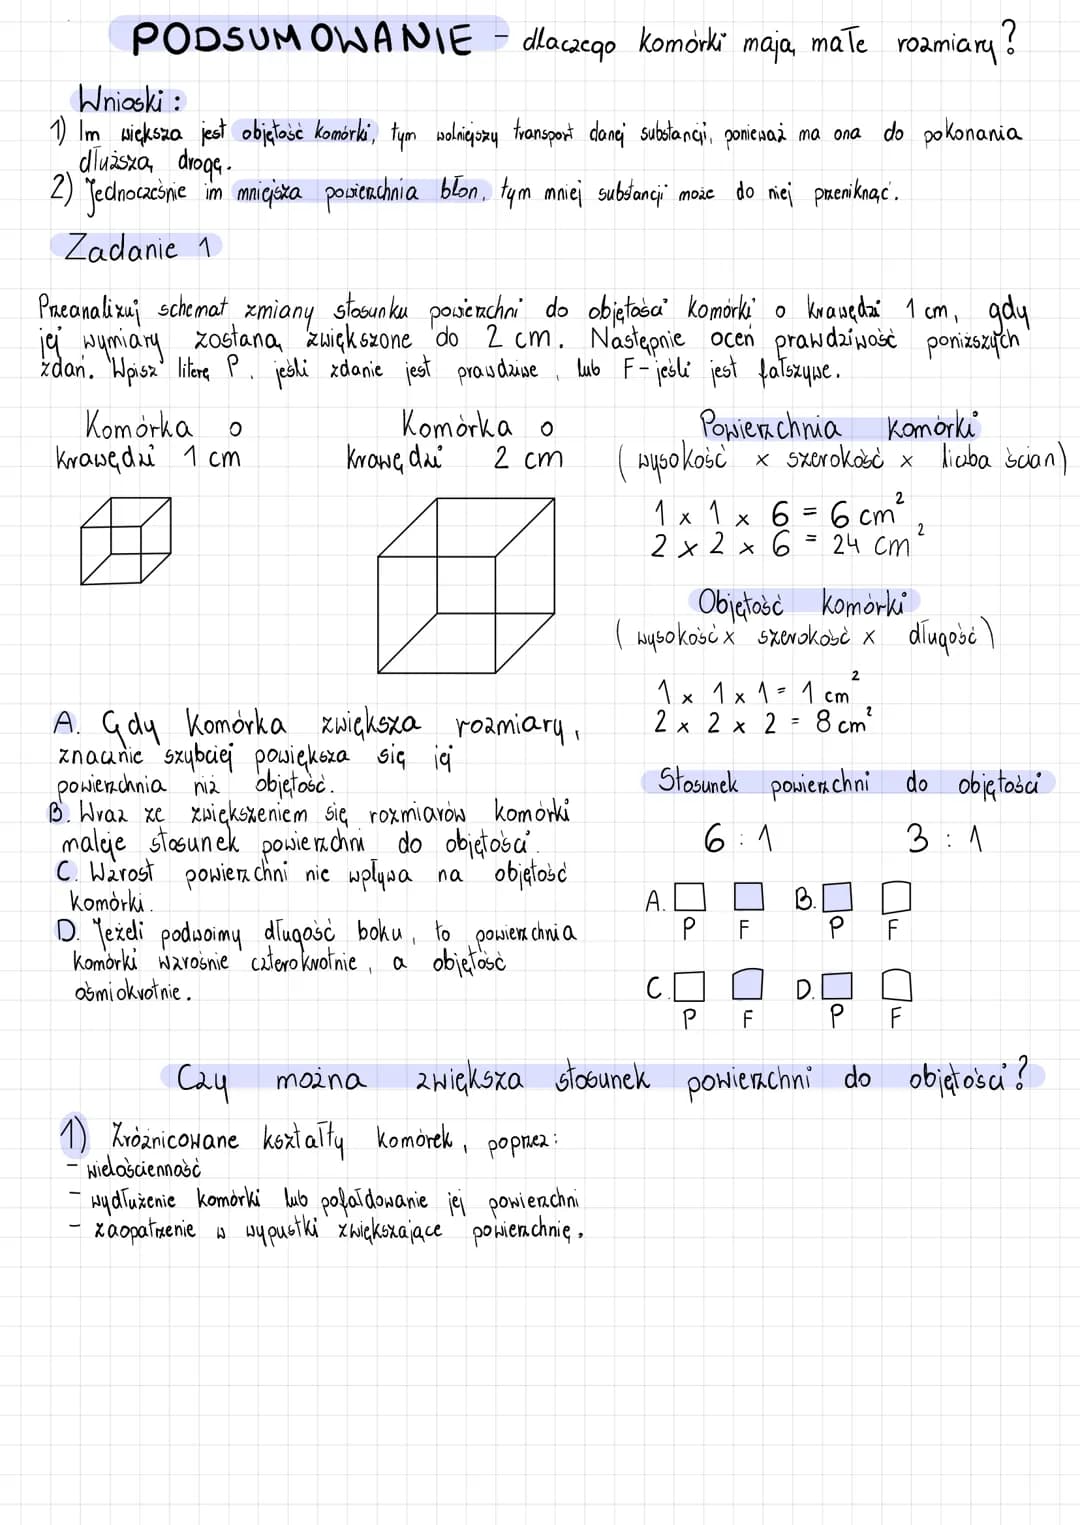 PODSUMOWANIE - dlaczego komórki mają małe rozmiary?
Wnioski:
1) Im większa jest objętość komórki, tym wolniejszy transport danej substancji, ponieważ ma ona do pokonania
dłuższą drogę.
2) Jednocześnie im mniejsza powierzchnia błon, tym mniej substancji może do niej przeniknąć.
Zadanie 1
Przeanalizuj schemat zmiany stosunku powierzchni do objętości komórki o krawędzi 1 cm, gdy
jej wymiary zostaną zwiększone do 2 cm. Następnie oceń prawdziwość poniższych
zdań. Wpisz literę P. jeśli zdanie jest prawdziwe, lub F - jeśli jest fałszywe.
Komórka o
krawędzi 1 cm
Komórka o
krawędzi 2 cm
Powierzchnia komórki
(wysokość x szerokość x liczba ścian)
1 x 1 x 6 = 6 cm²
2 x 2 x 6 = 24 cm²
Objętość komórki
(wysokość x szerokość x długość)
1 x 1 x 1 = 1 cm²
2 x 2 x 2 = 8 cm²
Stosunek powierzchni do objętości
6 : 1 3 : 1
A. Gdy komórka zwiększa rozmiary,
znacznie szybciej powiększa się jej
powierzchnia niż objętość.
B. Wraz ze zwiększeniem się rozmiarów komórki
maleje stosunek powierzchni do objętości.
C. Wzrost powierzchni nie wpływa na objętość
komórki.
D. Jeżeli podwoimy długość boku, to powierzchnia
komórki wzrośnie czterokrotnie, a objętość
ośmiokrotnie.
A. B.
P F P F
C. D.
P F P F
Czy można zwiększa stosunek powierzchni do objętości?
1) Zróżnicowane kształty komórek, poprzez:
- wielościenność
- wydłużenie komórki lub pofałdowanie jej powierzchni
- zaopatrzenie w wypustki zwiększające powierzchnię.